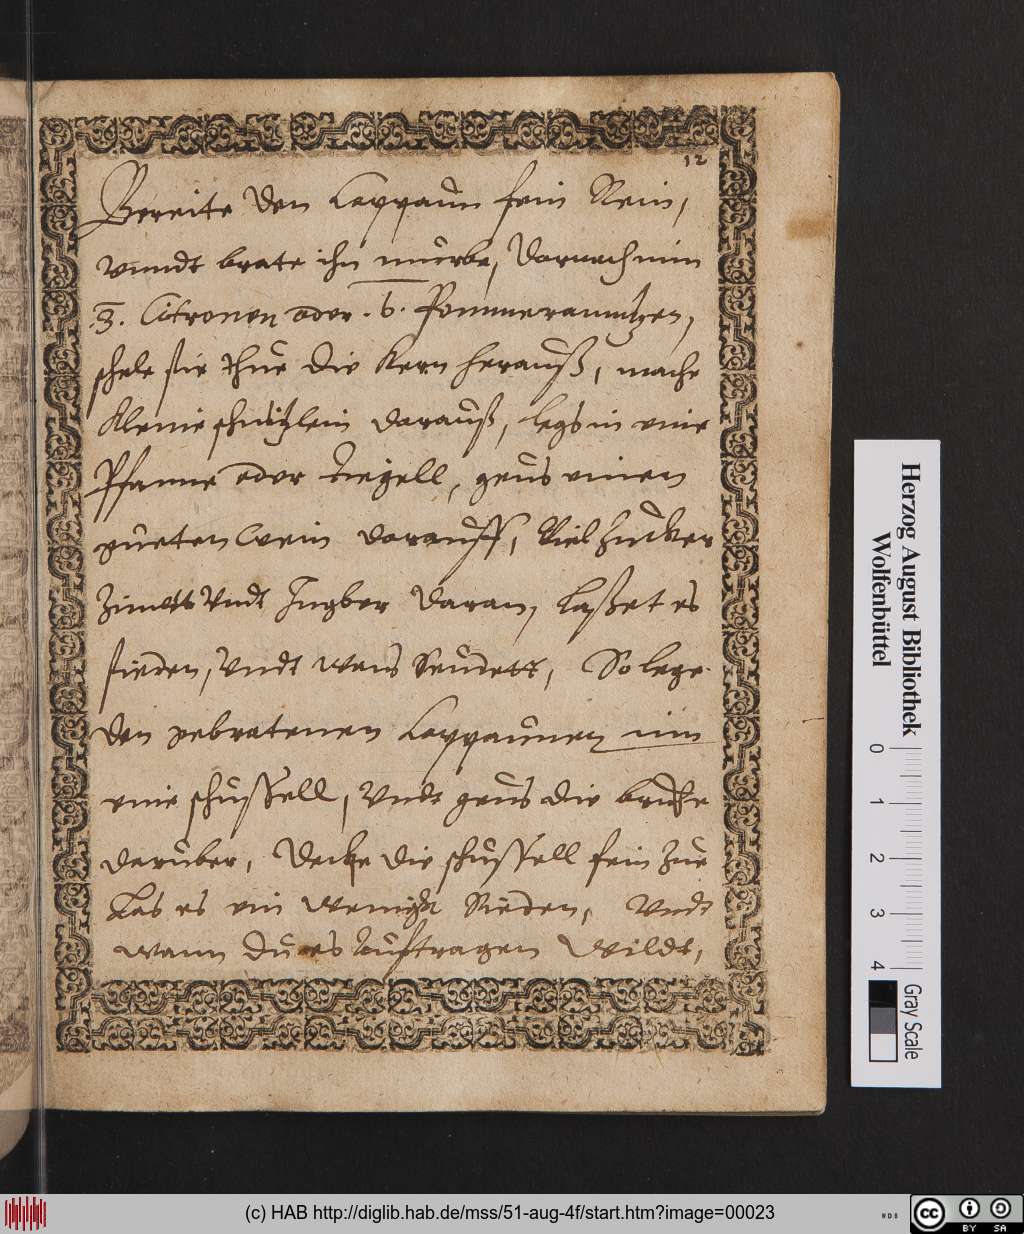 12
Bereite den Cappaun fein Rein,
vnndt brate ihn mürbe, darnach nim
.3. Citronen oder .6. Pommerantzen,
schele sie thue die Kern herauß, mache
Kleine schnitzlein darauß, legs in eine
Pfanne oder tiegell, geus einen
gueten Wein darauff, Viel Zucker
Zimett Vndt Ingber daran, Laßet es
sieden, Vndt wens Seudett, So lege
den gebratenen Cappaunen inn
eine schüssell, Vndt geus die brühe
darüber, Decke die schüssell fein zue
Las es ein wenigk Sieden, Vndt
wann du es Aufftragen Wildt,
Herzog August Bibliothek
Wolfenbüttel
0 1 2 3 4
Gray Scale
(c) HAB http://diglib.hab.de/mss/51-aug-4f/start.htm?image=00023
WDB
cc BY SA